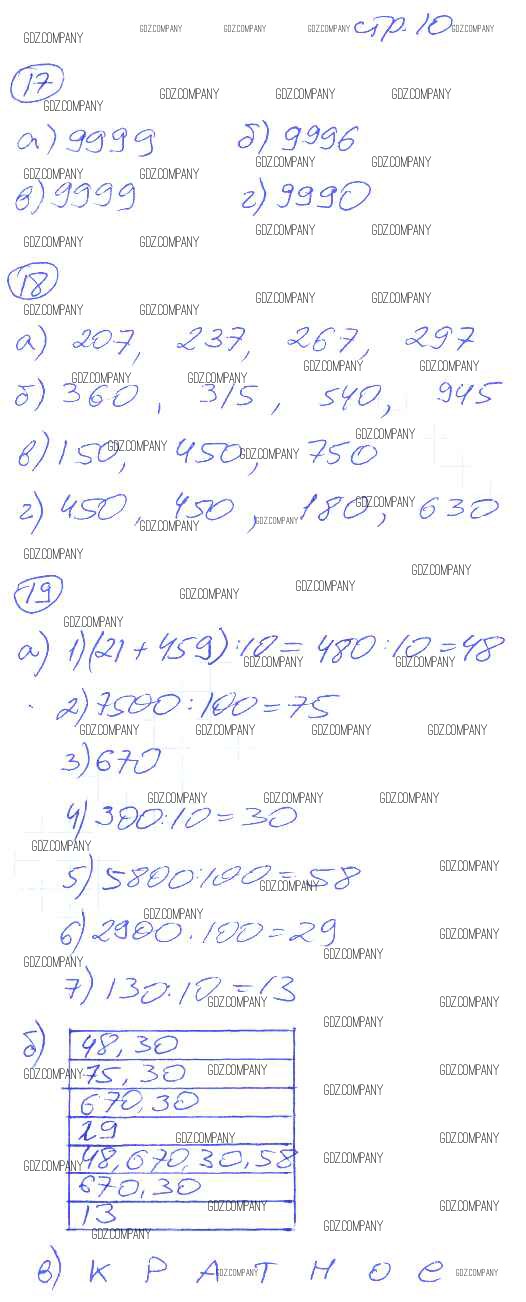 GDZ.COMPANY GDZ.COMPANY GDZ.COMPANY GDZ.COMPANY стр. 10 GDZ.COMPANY
17
GDZ.COMPANY GDZ.COMPANY GDZ.COMPANY GDZ.COMPANY
а) 9999 б) 9996
GDZ.COMPANY GDZ.COMPANY GDZ.COMPANY GDZ.COMPANY
в) 9999 г) 9990
GDZ.COMPANY GDZ.COMPANY GDZ.COMPANY GDZ.COMPANY
18
GDZ.COMPANY GDZ.COMPANY GDZ.COMPANY GDZ.COMPANY
а) 207, 237, 267, 297
GDZ.COMPANY GDZ.COMPANY GDZ.COMPANY GDZ.COMPANY
б) 360, 315, 540, 945
GDZ.COMPANY GDZ.COMPANY GDZ.COMPANY
в) 150, 450, 750
г) 450, 450, 180, 630
GDZ.COMPANY GDZ.COMPANY GDZ.COMPANY
GDZ.COMPANY GDZ.COMPANY
19
GDZ.COMPANY GDZ.COMPANY
GDZ.COMPANY
а) 1) (21 + 459) : 10 = 480 : 10 = 48
GDZ.COMPANY GDZ.COMPANY
2) 7500 : 100 = 75
GDZ.COMPANY GDZ.COMPANY GDZ.COMPANY GDZ.COMPANY
3) 670
GDZ.COMPANY GDZ.COMPANY GDZ.COMPANY
4) 300 : 10 = 30
GDZ.COMPANY GDZ.COMPANY
5) 5800 : 100 = 58
GDZ.COMPANY
GDZ.COMPANY
6) 2900 : 100 = 29
GDZ.COMPANY GDZ.COMPANY GDZ.COMPANY
7) 130 : 10 = 13
GDZ.COMPANY GDZ.COMPANY
GDZ.COMPANY
б) 48, 30
75, 30
GDZ.COMPANY GDZ.COMPANY GDZ.COMPANY
GDZ.COMPANY
670, 30
29
GDZ.COMPANY GDZ.COMPANY
48, 670, 30, 58
GDZ.COMPANY GDZ.COMPANY
670, 30
GDZ.COMPANY GDZ.COMPANY
13
GDZ.COMPANY GDZ.COMPANY
в) К Р А Т Н О Е
GDZ.COMPANY GDZ.COMPANY GDZ.COMPANY